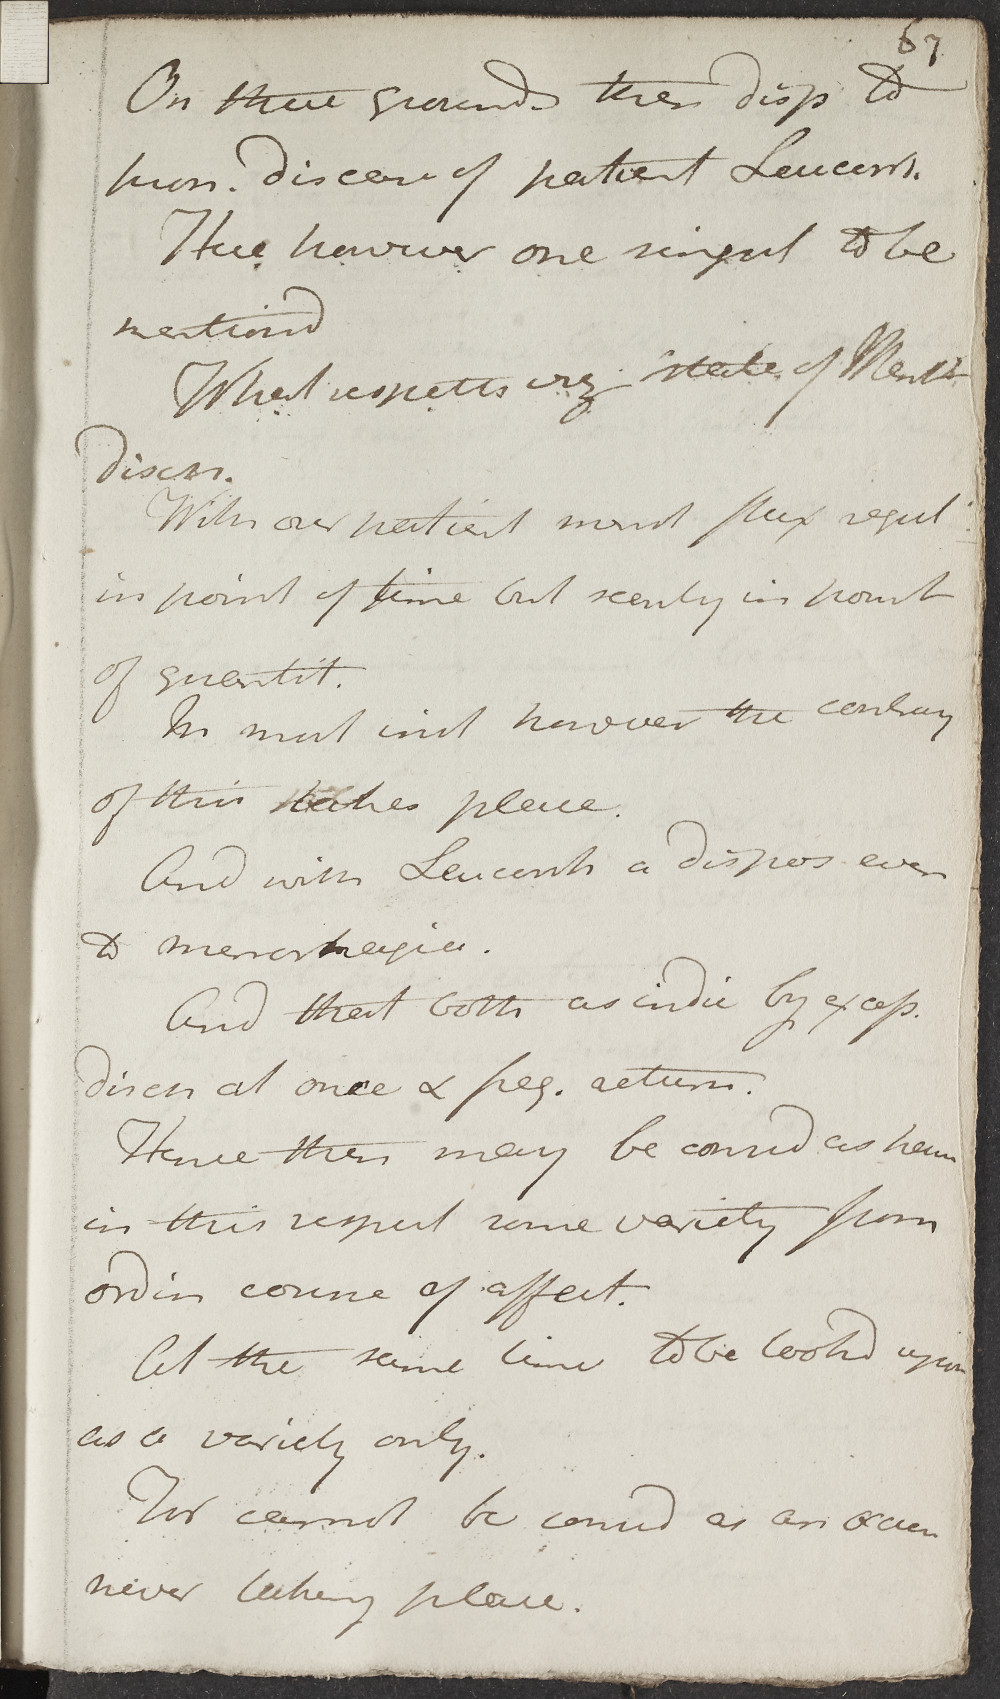 67
On these grounds then disp to
pron. disease of patient Leucorrh.
Here however one singul to be
mentiond
What respects irreg state of Menst
disch.
With our patient menst flux regul
in point of time but scanty in point
of quantit.
In most inst however the contrary
of this takes place.
And with Leucorrh a dispos even
to menorrhagia.
And that both as indic by excess.
disch at once & freq. return.
Hence then may be consid as here
in this respect some variety from
ordin course of affect.
At the same time to be lookd upon
as a variety only.
For cannot be consid as an occurr
never taking place.